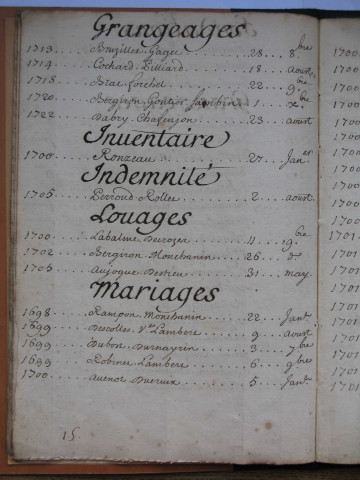 Grangeages
1713 .... Bruzillet Gaget ........ 28 .. 8.bre
1714 .... Cochard Billiard ....... 18 .. aoust
1718 .... Brac forchet ......... 22 .. 9.bre
1720 .... Bergiron Gontier Jambin .. 1 .. X.bre
1722 .... Dabry Chavenson ....... 23 .. aoust
Inventaire
1700 .... Ronzeau ............ 27 .. Jan.er
Indemnité
1705 .... Perroud Rollet ....... 2 .. aoust
Louages
1700 .... Labalme Derozer ...... 4 .. 9.bre
1702 .... Bergiron Monchanin .... 26 .. d°
1705 .... Aujogue Destieu ....... 31 .. may
Mariages
1698 .... Rampon Monchanin ..... 22 .. Jan.er
1699 .... Descolles Lambert ..... 9 .. aoust
1699 .... Dubost Durnayrin ..... 3 .. 7.bre
1699 .... Robinet Lambert ...... 6 .. 9.bre
1700 .... auenot Duvrux ....... 5 .. Jan.er
15
1700
1700
1700
1700
1701
1701
1701
1701
1701
1701
1701
1701
1701
1701
1701
1701
1701